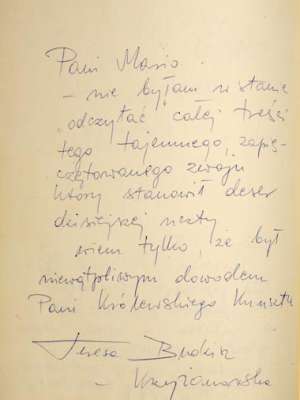 Pani Mario
- nie byłam w stanie
odczytać całej treści
tego tajemnego, zapie-
czętowanego zwoju
który stanowił deser
dzisiejszej uczty
wiem tylko, że był
niewątpliwym dowodem
Pani Królewskiego Kunsztu
Teresa
- Krzyżanowska